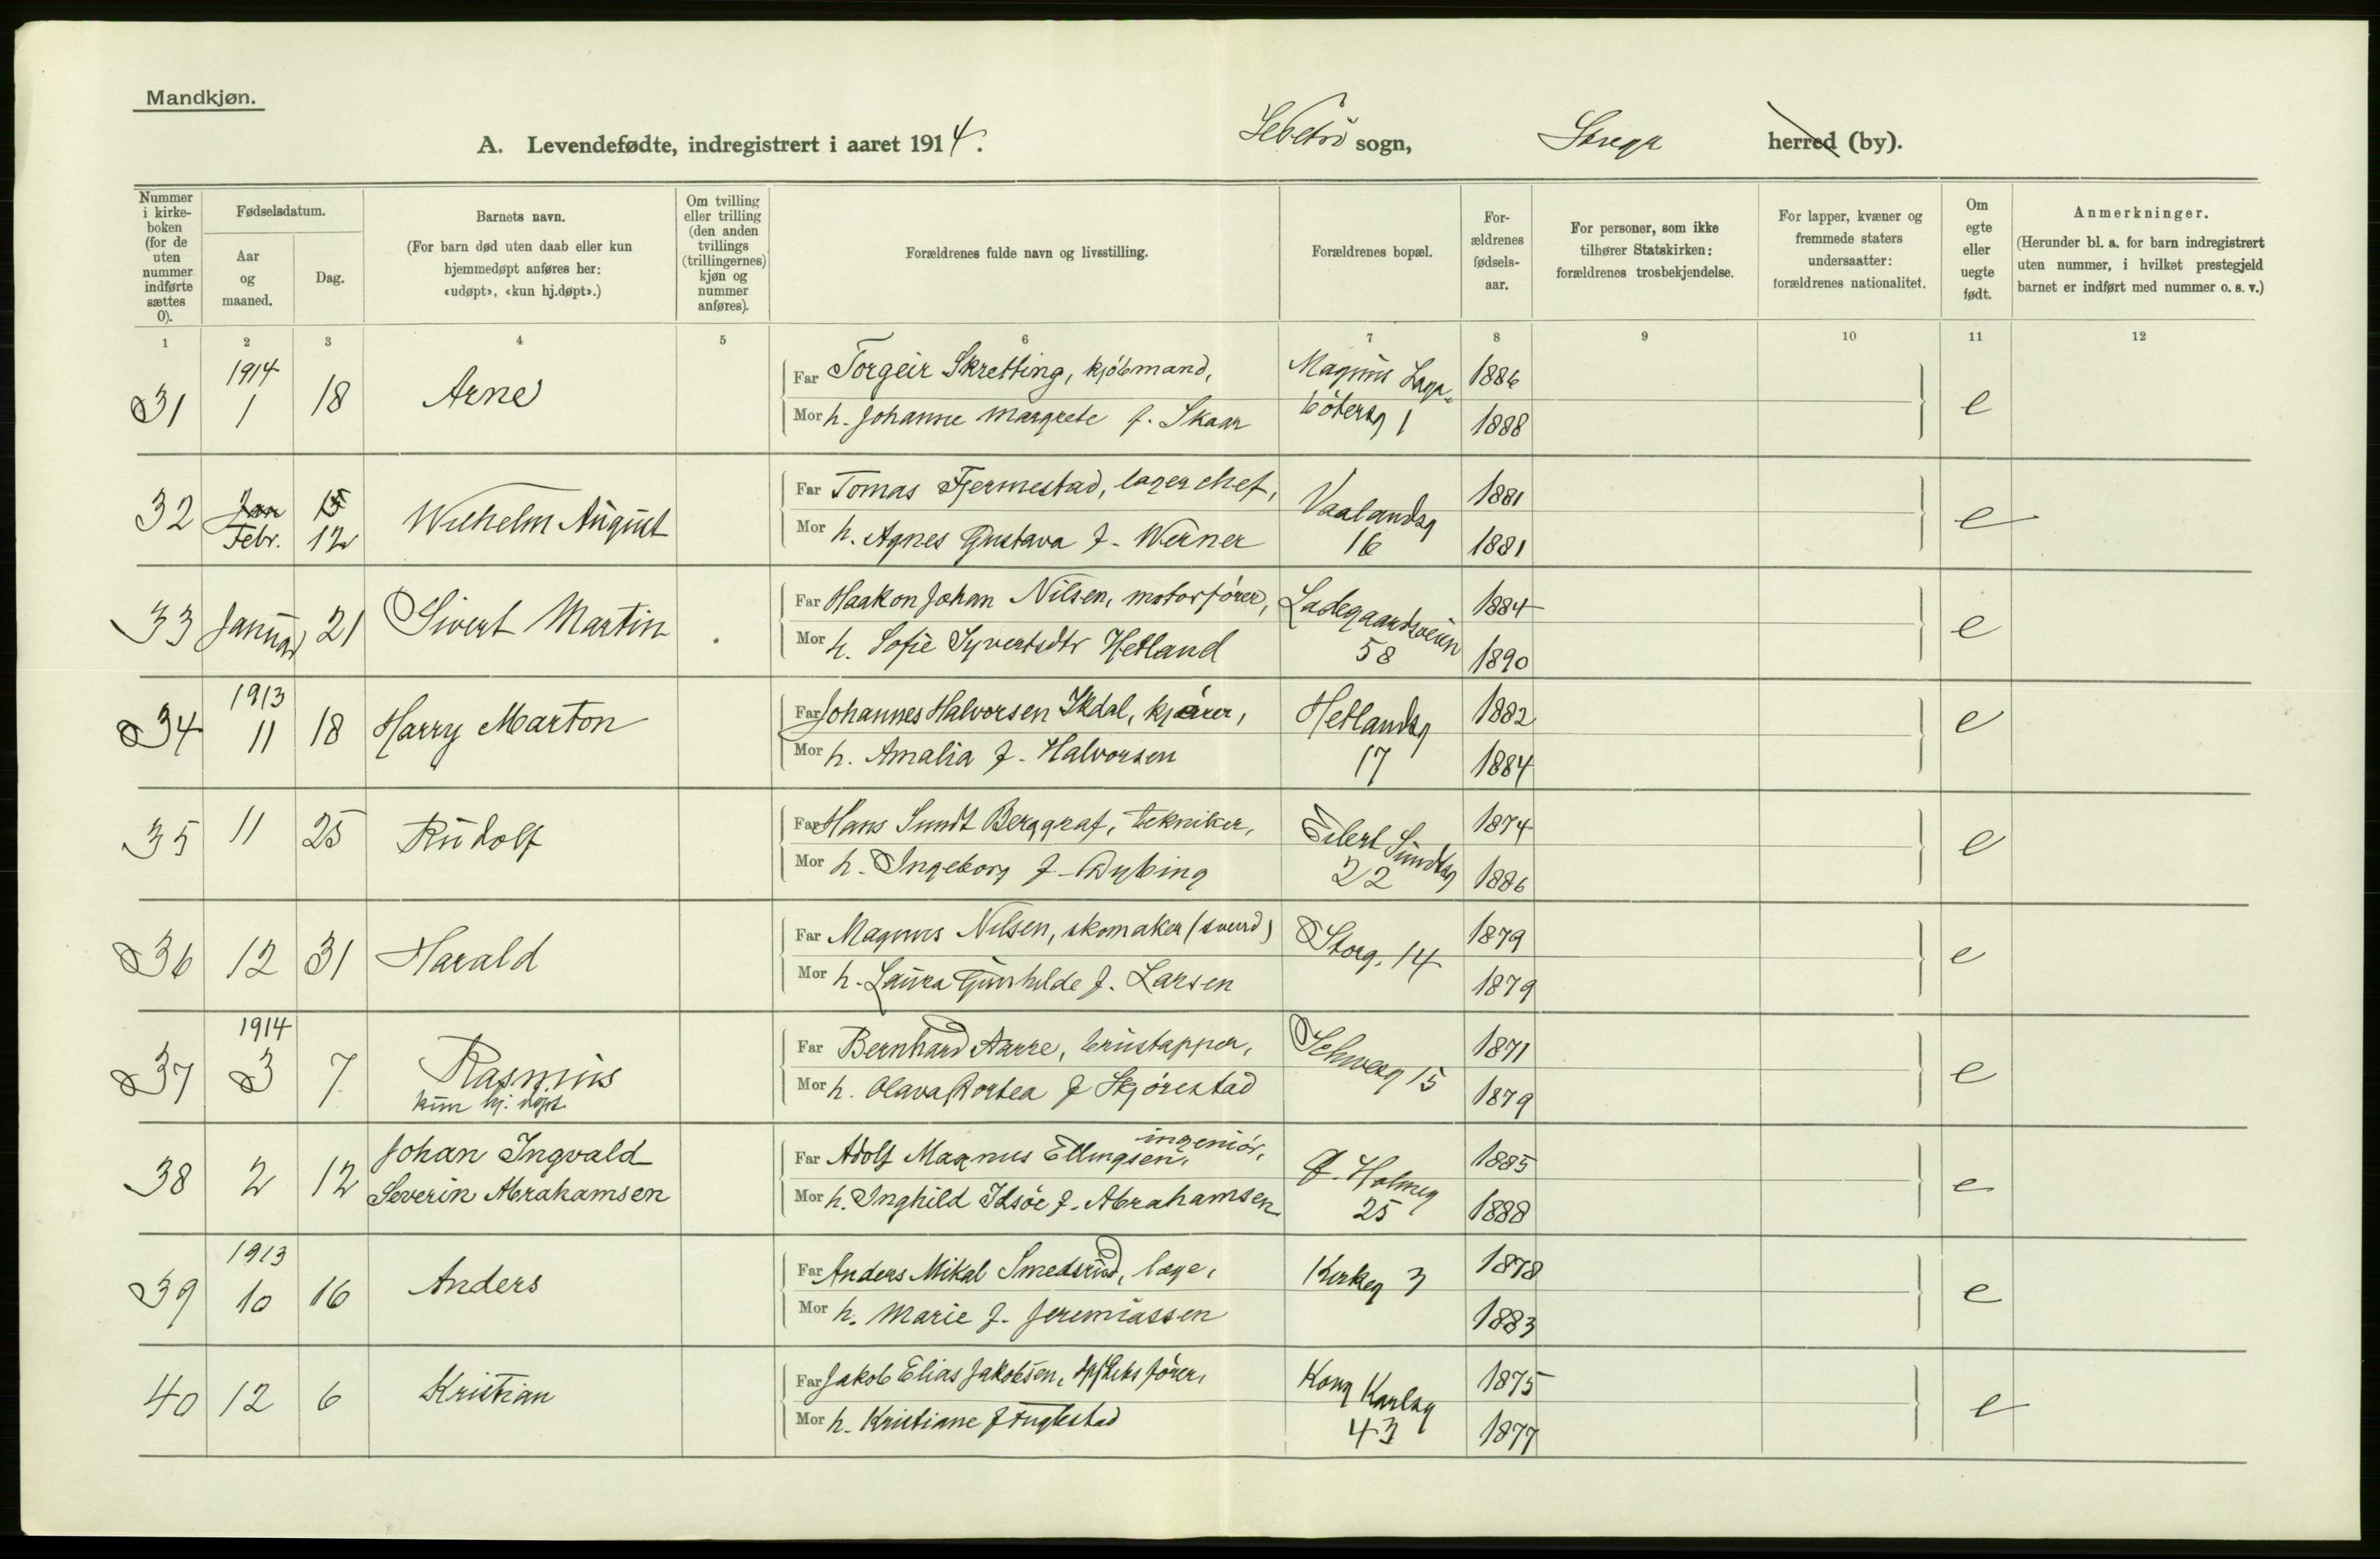 Mandkjøn.
A. Levendefødte, indregistrert i aaret 1914.
sogn,
herred (by).
Nummer i kirke-boken (for de uten nummer indførte sættes 0).
Fødselsdatum.
Aar og maaned.
Dag.
Barnets navn.
(For barn død uten daab eller kun hjemmedøpt anføres her: «udøpt», «kun hj.døpt».)
Om tvilling eller trilling (den anden tvillings (trillingernes) kjøn og nummer anføres).
Forældrenes fulde navn og livsstilling.
Forældrenes bopæl.
For-ældrenes fødsels-aar.
For personer, som ikke tilhører Statskirken: forældrenes trosbekjendelse.
For lapper, kvæner og fremmede staters undersaatter: forældrenes nationalitet.
Om egte eller uegte født.
Anmerkninger.
(Herunder bl. a. for barn indregistrert uten nummer, i hvilket prestegjeld barnet er indført med nummer o. s. v.)
1 2 3 4 5 6 7 8 9 10 11 12
31 1914 1 18 Arne
Far Torgeir Skretting, kjöbmand, 1886
Mor h. Johanne Margrete f. Skaar 1888
e
32 Jan 15 Febr. 12 Wilhelm August
Far Tomas Fjermestad, lagerchef, Vaalandsg 1881
Mor h. Agnes Gustava f. Werner 16 1881
e
33 Januar 21 Sivert Martin
Far Haakon Johan Nilsen, motorfører, Ladegaardsveien 1884
Mor h. Sofie Syvertsdtr Hetland 58 1890
e
34 1913 11 18 Harry Marton
Far Johannes Halvorsen Ikdal, kjører, Hetlandsg 1882
Mor h. Amalia f. Halvorsen 17 1884
e
35 11 25 Rudolf
Far Hans Sundt Berggraf, tekniker, Eilert Sundtsg 1874
Mor h. Ingeborg f. Dybing 22 1886
e
36 12 31 Harald
Far Magnus Nilsen, skomaker (svend) Storg. 14 1879
Mor h. Laura Gunhilde f. Larsen 1879
e
37 1914 3 7 Rasmus
kun hj. døpt
Far Bernhard Aarre, brustapper, 15 1871
Mor h. Olava Dortea f Skjørestad 1879
e
38 2 12 Johan Ingvald
Severin Abrahamsen
Far Adolf Magnus Ellingsen, ingeniør, 1885
Mor h. Inghild Idsøe f. Abrahamsen 25 1888
e
39 1913 10 16 Anders
Far Anders Mikal Smedsrud, læge, Kirkeg 3 1878
Mor h. Marie f. Jeremiassen 1883
e
40 12 6 Kristian
Far Jakob Elias Jakobsen, Kong Karlsg 1875
Mor h. Kristiane f Fuglestad 43 1877
e